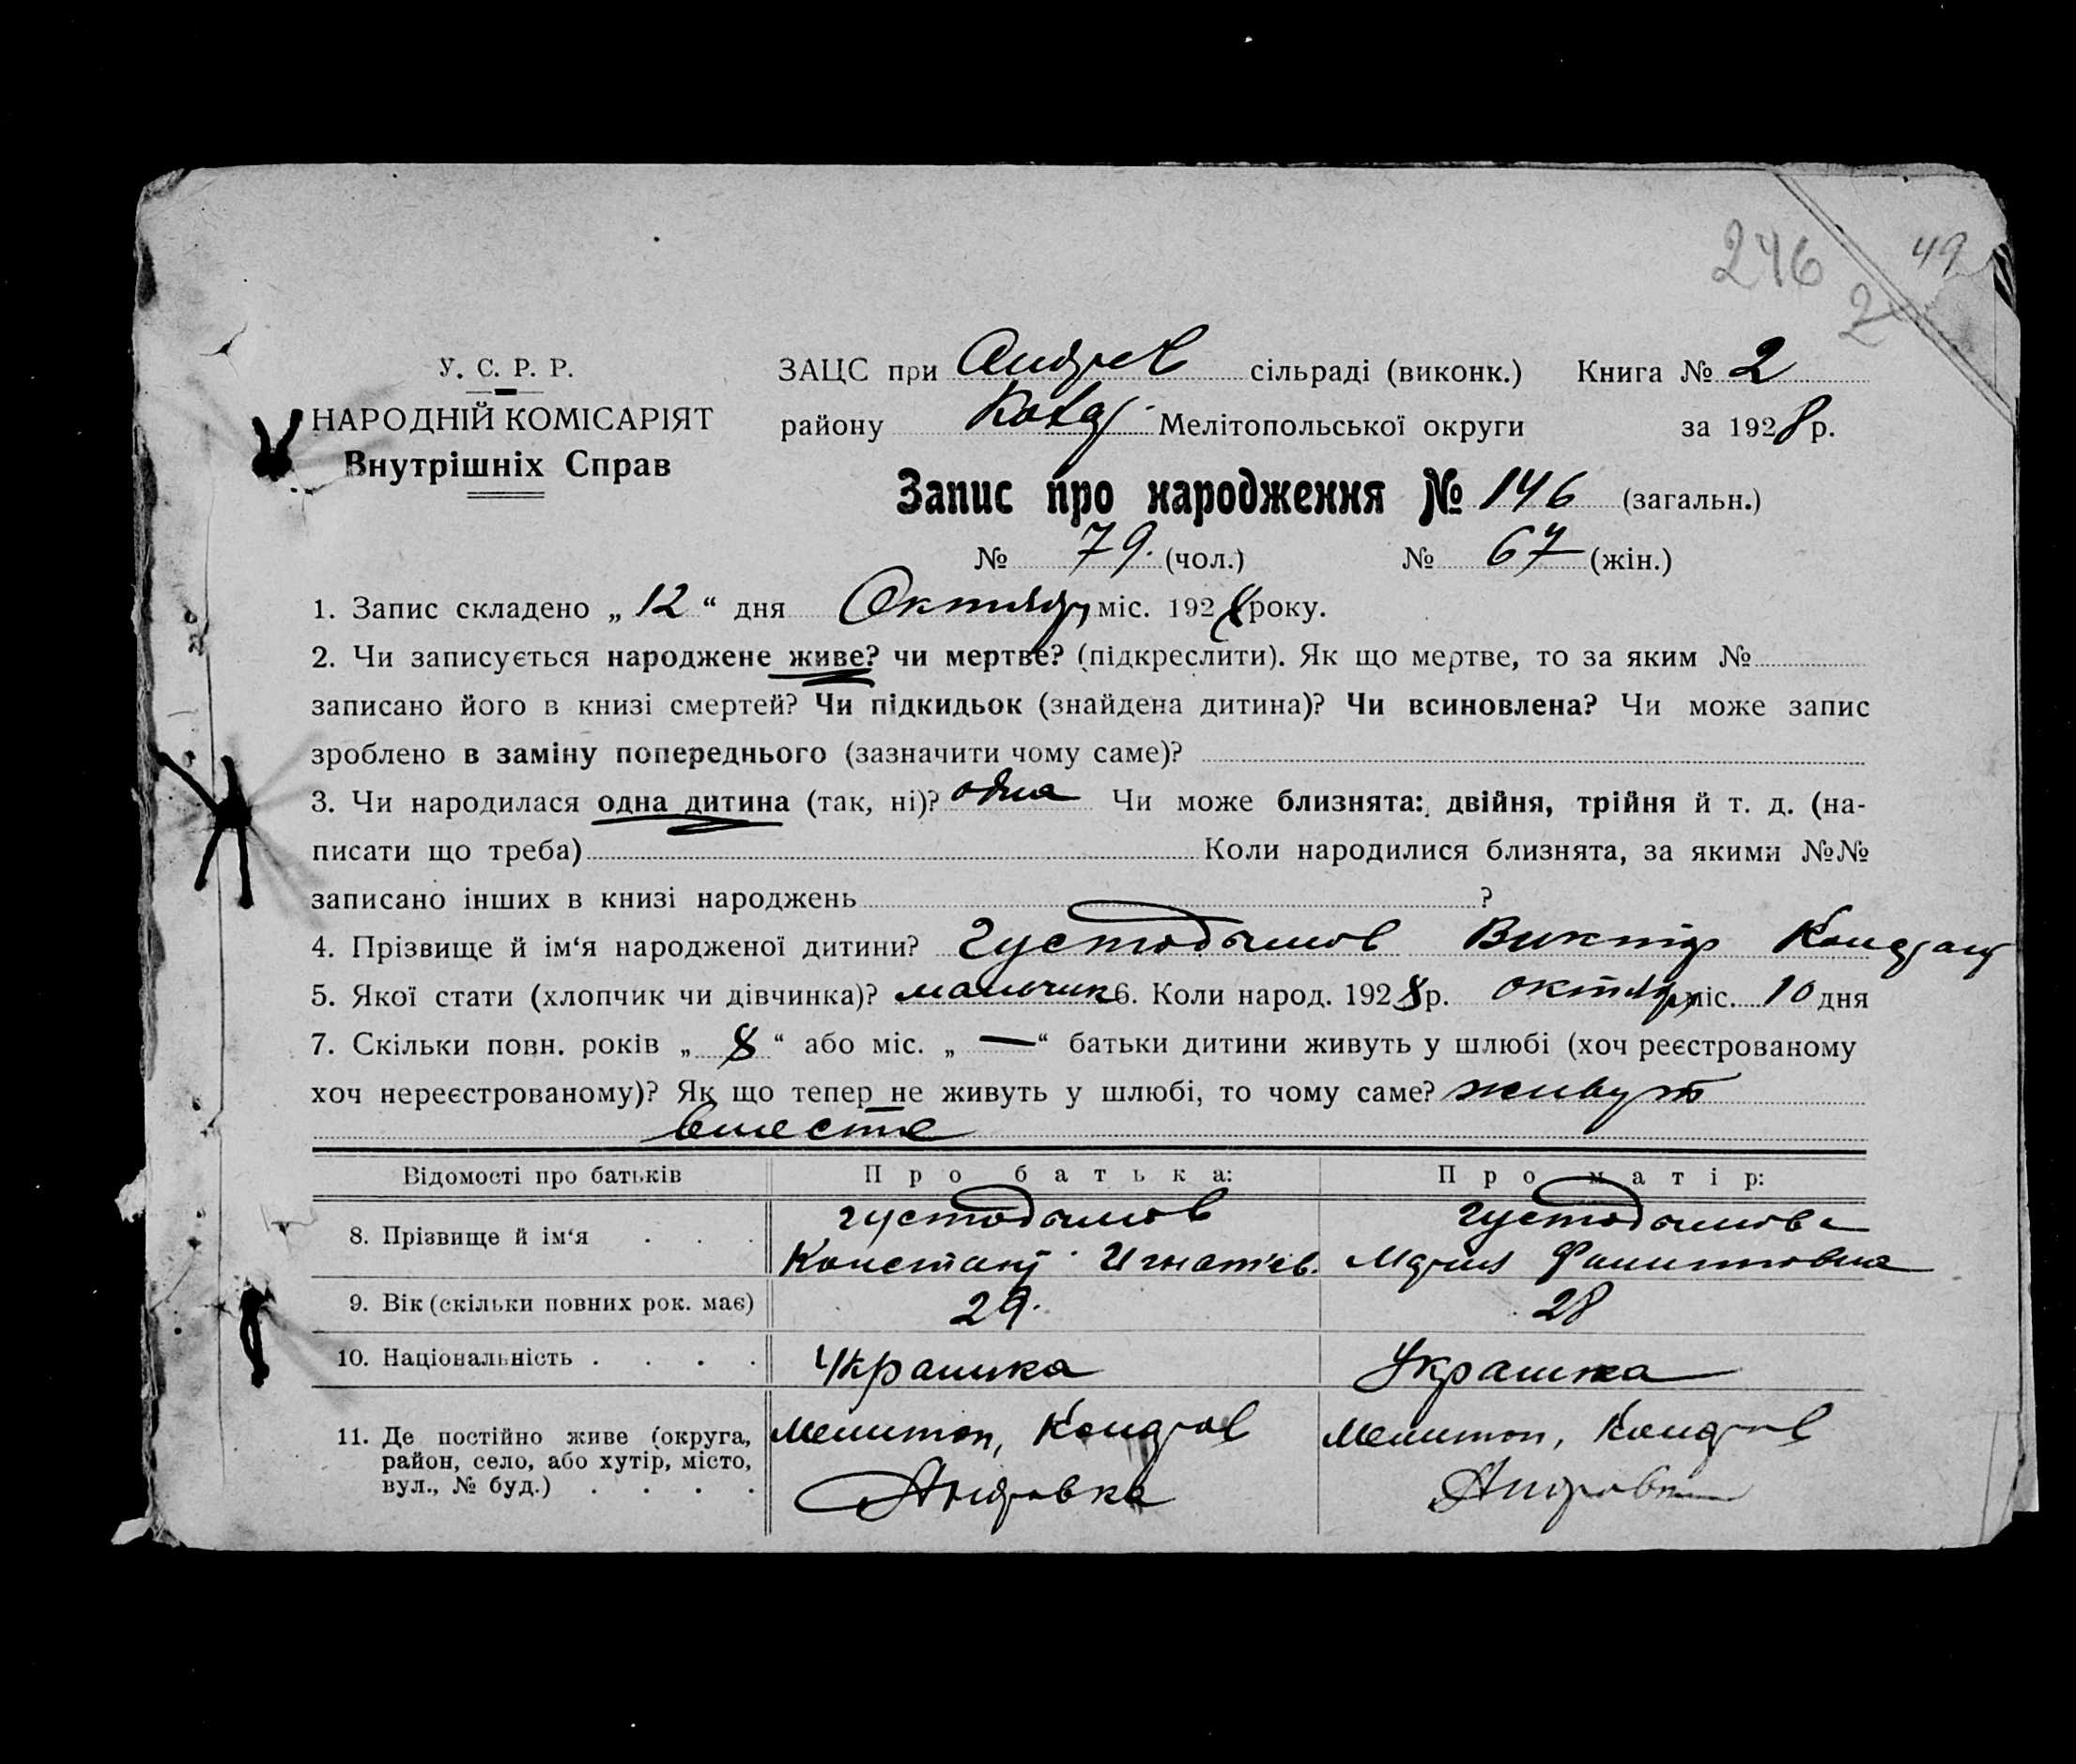 246 49
2
У. С. Р. Р.
НАРОДНІЙ КОМІСАРІЯТ
Внутрішніх Справ
ЗАЦС при Андрев сільраді (виконк.) Книга № 2
району Мелітопольської округи за 1928 р.
Запис про народження № 146 (загальн.)
№ 79. (чол.) № 67 (жін.)
1. Запис складено „ 12 “ дня Октября міс. 1928 року.
2. Чи записується народжене живе? чи мертве? (підкреслити). Як що мертве, то за яким №
записано його в книзі смертей? Чи підкидьок (знайдена дитина)? Чи всиновлена? Чи може запис
зроблено в заміну попереднього (зазначити чому саме)?
3. Чи народилася одна дитина (так, ні)? одна Чи може близнята: двійня, трійня й т. д. (на-
писати що треба) Коли народилися близнята, за якими №№
записано інших в книзі народжень ?
4. Прізвище й ім‘я народженої дитини? Густодымов Виктор
5. Якої стати (хлопчик чи дівчинка)? мальчик 6. Коли народ. 1928 р. октября міс. 10 дня
7. Скільки повн. років „ 8 “ або міс. „ — “ батьки дитини живуть у шлюбі (хоч реєстрованому
хоч нереєстрованому)? Як що тепер не живуть у шлюбі, то чому саме? живут
вместе
Відомості про батьків Про батька: Про матір:
8. Прізвище й ім‘я . . . Густодымов Густодымова
Констант Игнатьев. Мария Филипповна
9. Вік (скільки повних рок. має) 29. 28
10. Національність . . . . Украинка Украинка
11. Де постійно живе (округа, Мелитоп, Мелитоп,
район, село, або хутір, місто,
вул., № буд.) . . . . Андровка Андровка